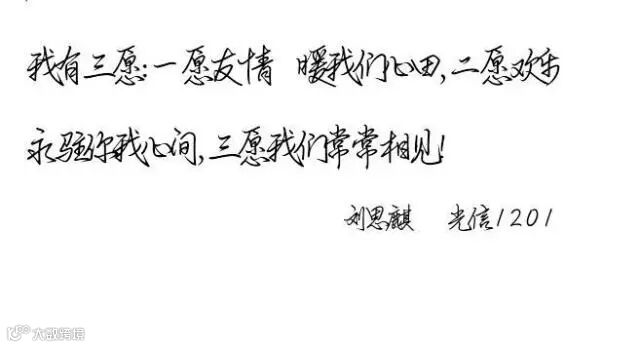 我有三愿:一愿友情 暖我们心田,二愿欢乐
永驻你我心间,三愿我们常常相见!
刘思麒 光信1201
大数跨境